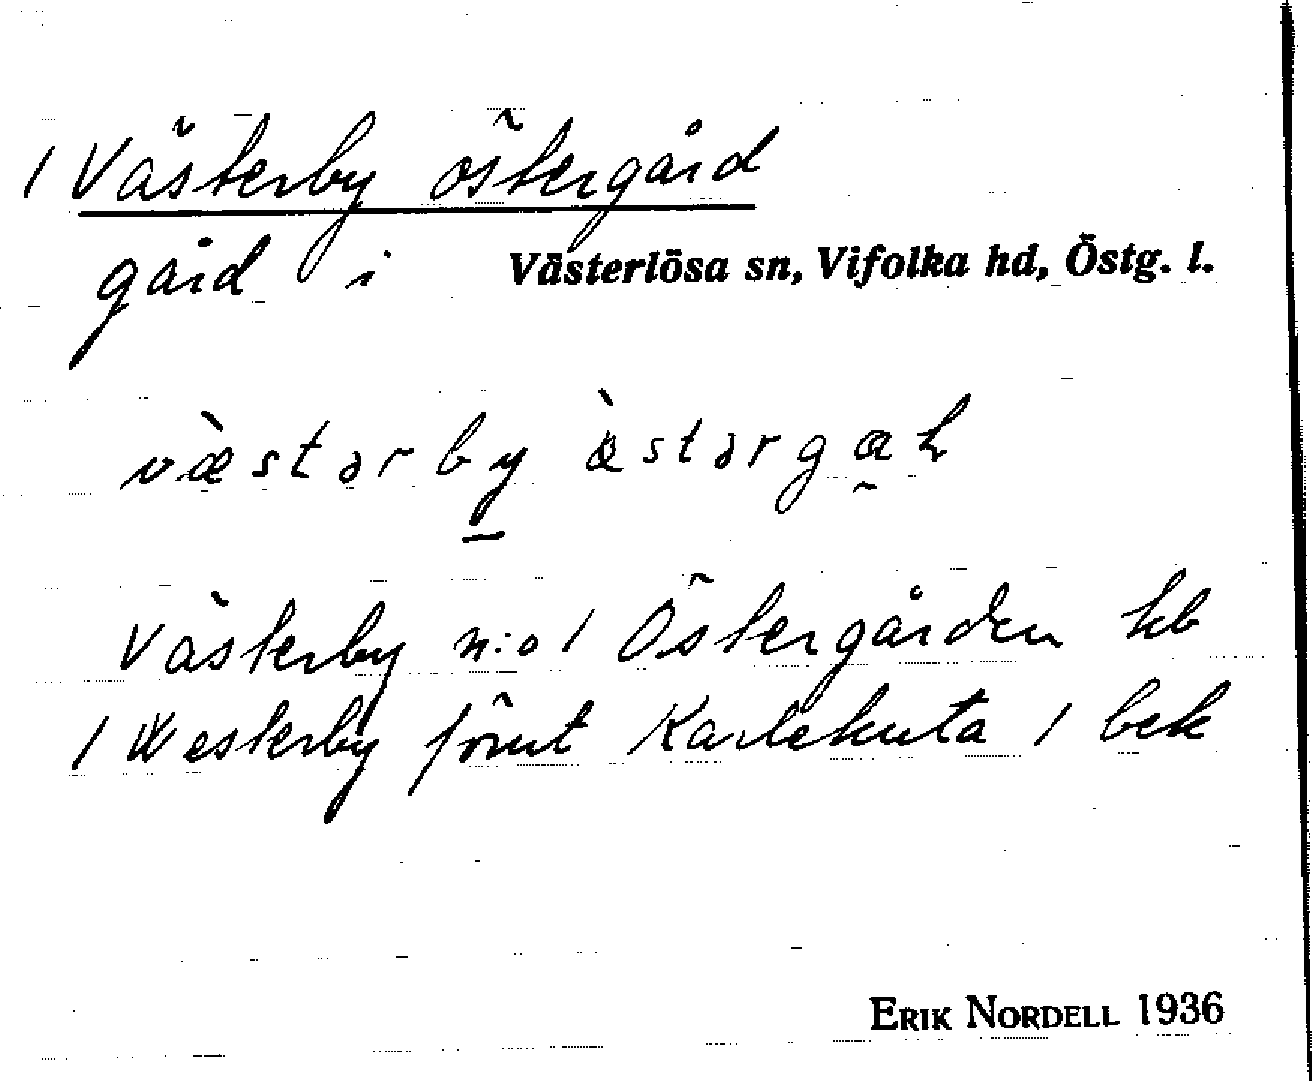 / Västerby östergård
gård i Västerlösa sn, Vifolka hd, Östg. l.
væ̀stərby æ̀stərgaɫ
Västerby n:o 1 Östergården hb
/ Westerby förut Karlekuta / bek
ERIK NORDELL 1936